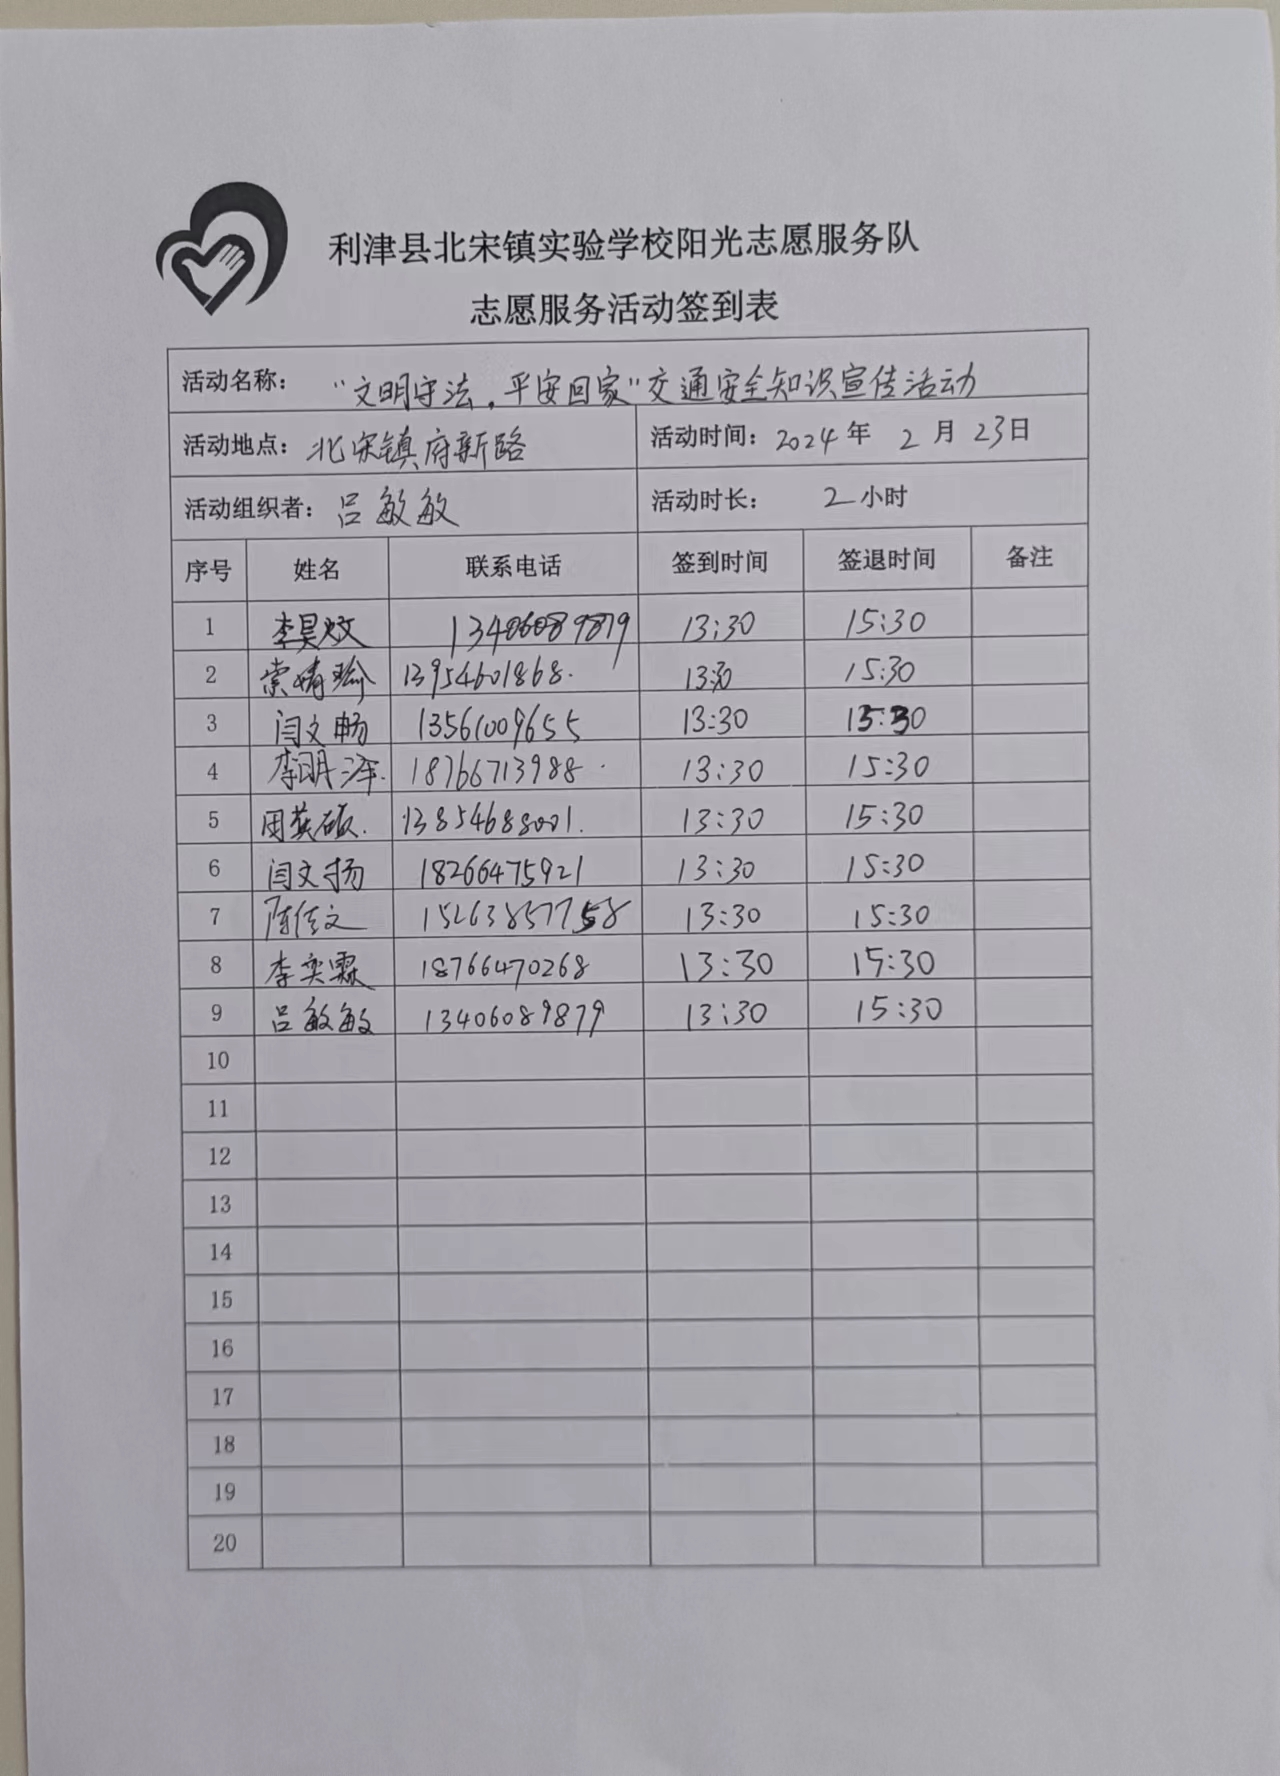 利津县北宋镇实验学校阳光志愿服务队
志愿服务活动签到表
活动名称： “文明守法，平安回家”交通安全知识宣传活动
活动地点：北宋镇府新路 活动时间：2024年 2月 23日
活动组织者：吕敏敏 活动时长： 2小时
序号 姓名 联系电话 签到时间 签退时间 备注
1 李昊炆 13406089879 13:30 15:30
2 崇婧瑜 13954601868. 13:30 15:30
3 闫文畅 13561009655 13:30 15:30
4 李明泽. 18766713988. 13:30 15:30
5 英硕. 13854688001. 13:30 15:30
6 闫文扬 18266475921 13:30 15:30
7 陈佳文 15263857758 13:30 15:30
8 李奕霖 18766470268 13:30 15:30
9 吕敏敏 13406089879 13:30 15:30
10
11
12
13
14
15
16
17
18
19
20